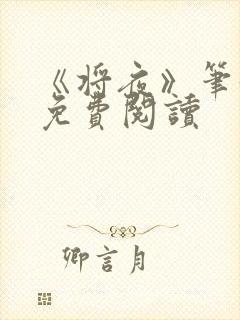 《将夜》筆
免費閱讀
卿言月